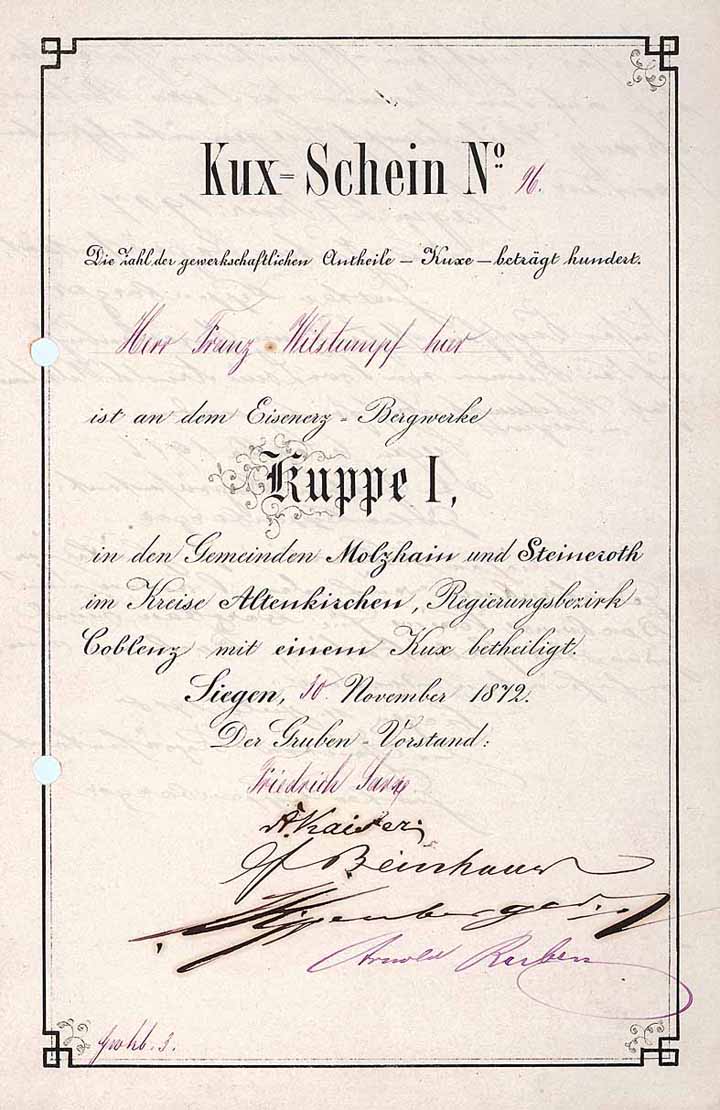 Kux=Schein No. 96.
Die Zahl der gewerkschaftlichen Antheile — Kuxe — beträgt hundert.
Herr Franz Wilstumpf hier
ist an dem Eisenerz-Bergwerke
Kuppe I,
in den Gemeinden Molzhain und Steineroth
im Kreise Altenkirchen, Regierungsbezirk
Coblenz mit einem Kux betheiligt.
Siegen, 30. November 1872.
Der Gruben-Vorstand:
Friedrich
A. Kaiser
Beinhauer
Arnold